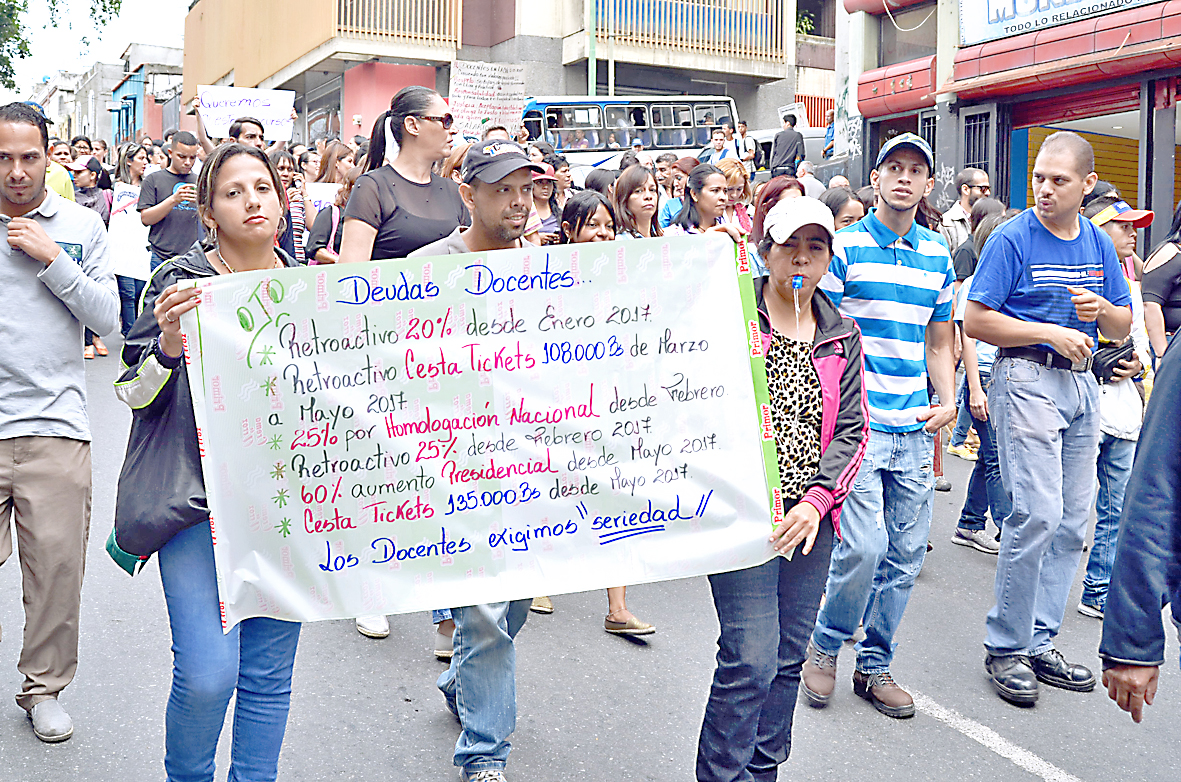 Deudas Docentes...
* Retroactivo 20% desde Enero 2017.
* Retroactivo Cesta Tickets 108.000 Bs de Marzo
a Mayo 2017.
* 25% por Homologación Nacional desde Febrero
* Retroactivo 25% desde Febrero 2017.
* 60% aumento Presidencial desde Mayo 2017.
* Cesta Tickets 135.000 Bs desde Mayo 2017.
Los Docentes exigimos "seriedad"
Queremos
TODO LO RELACIONADO
Primor
Primor
Primor
Primor